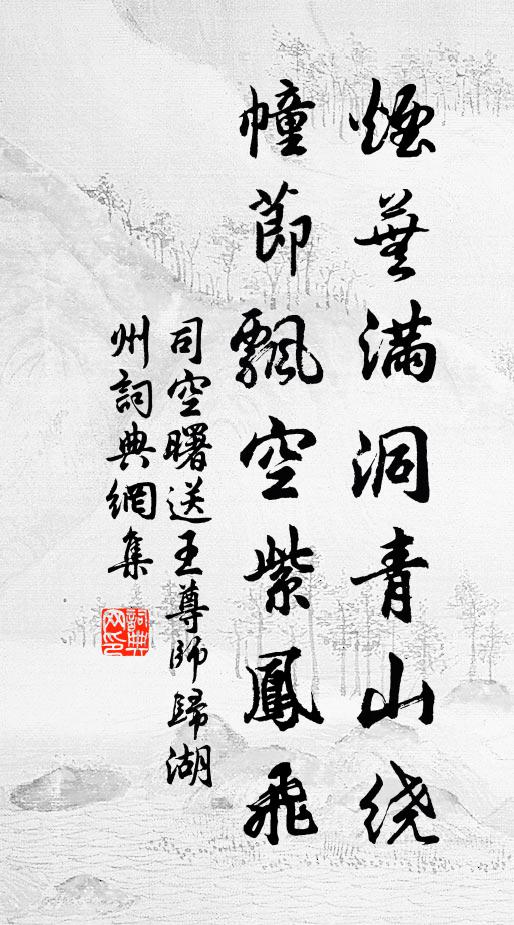 煙蕪滿洞青山绕
幢節飄空紫鳳飛
司空曙送王尊師歸湖
州詞典網集
詞典
网印